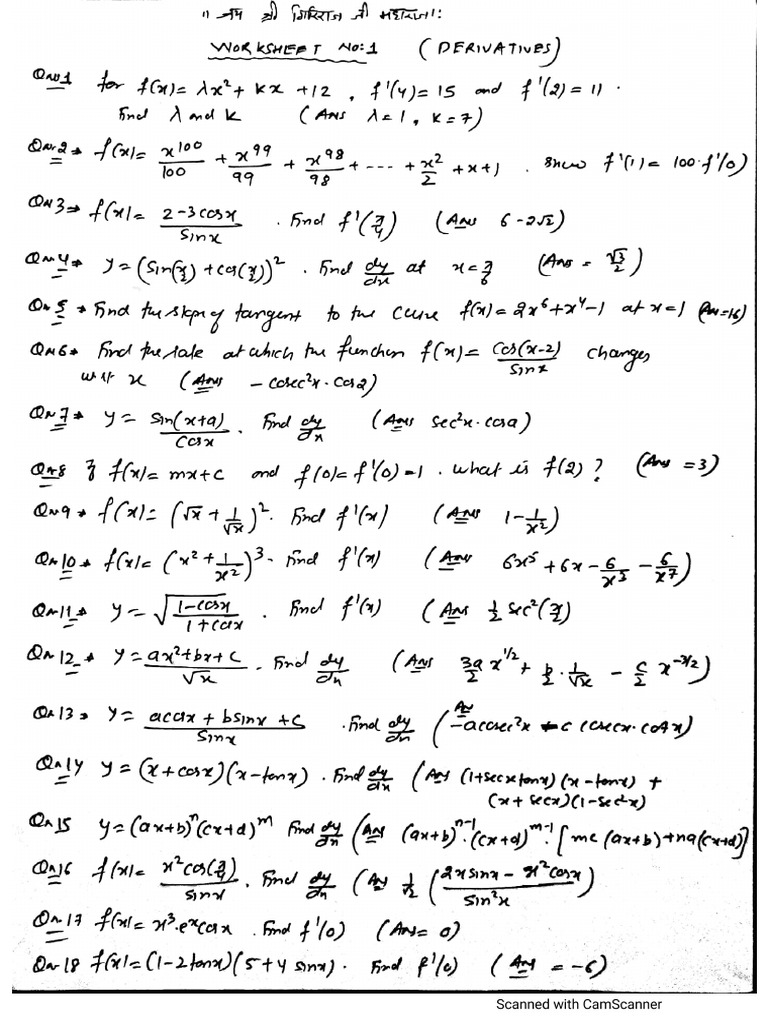 " जय श्री गिरिराज जी महाराज":
WORKSHEET NO:1 (DERIVATIVES)
Qn 1 for f(x) = λx² + kx + 12, f'(4) = 15 and f'(2) = 11.
Find λ and k (Ans λ=1, k=7)
Qn 2 → f(x) = x^100/100 + x^99/99 + x^98/98 + --- + x²/2 + x + 1. show f'(1) = 100·f'(0)
Qn 3 → f(x) = (2-3cosx)/sinx. Find f'(π/4) (Ans 6-2√2)
Qn 4 → y = (sin(x/2) + cos(x/2))². Find dy/dx at x = π/6 (Ans = √3/2)
Qn 5 → Find the slope of tangent to the curve f(x) = 2x⁶+x⁴-1 at x=1 (Ans=16)
Qn 6 → Find the rate at which the function f(x) = cos(x-2)/sinx changes
w.r.t x (Ans -cosec²x·cos2)
Qn 7 → y = sin(x+a)/cosx. Find dy/dx (Ans sec²x·cosa)
Qn 8 If f(x) = mx+c and f(0) = f'(0) = 1. what is f(2)? (Ans = 3)
Qn 9 → f(x) = (√x + 1/√x)². Find f'(x) (Ans 1-1/x²)
Qn 10 → f(x) = (x² + 1/x²)³. Find f'(x) (Ans 6x⁵ + 6x - 6/x³ - 6/x⁷)
Qn 11 → y = √((1-cosx)/(1+cosx)). Find f'(x) (Ans ½ sec²(x/2))
Qn 12 → y = (ax²+bx+c)/√x. Find dy/dx (Ans 3a/2 x^1/2 + b/2·1/√x - c/2 x^-3/2)
Qn 13 → y = (acosx + bsinx + c)/sinx. Find dy/dx (Ans -acosec²x - c cosecx·cotx)
Qn 14 y = (x+cosx)(x-tanx). Find dy/dx (Ans (1+secxtanx)(x-tanx) +
(x+secx)(1-sec²x)
Qn 15 y = (ax+b)ⁿ(cx+d)ᵐ Find dy/dx (Ans (ax+b)ⁿ⁻¹·(cx+d)ᵐ⁻¹·[mc(ax+b)+na(cx+d)]
Qn 16 f(x) = x²cos(π/4)/sinx. Find dy/dx (Ans 1/√2 ((2xsinx - x²cosx)/sin²x)
Qn 17 f(x) = x³·eˣcosx. Find f'(0) (Ans = 0)
Qn 18 f(x) = (1-2tanx)(5+4sinx). Find f'(0) (Ans = -6)
Scanned with CamScanner